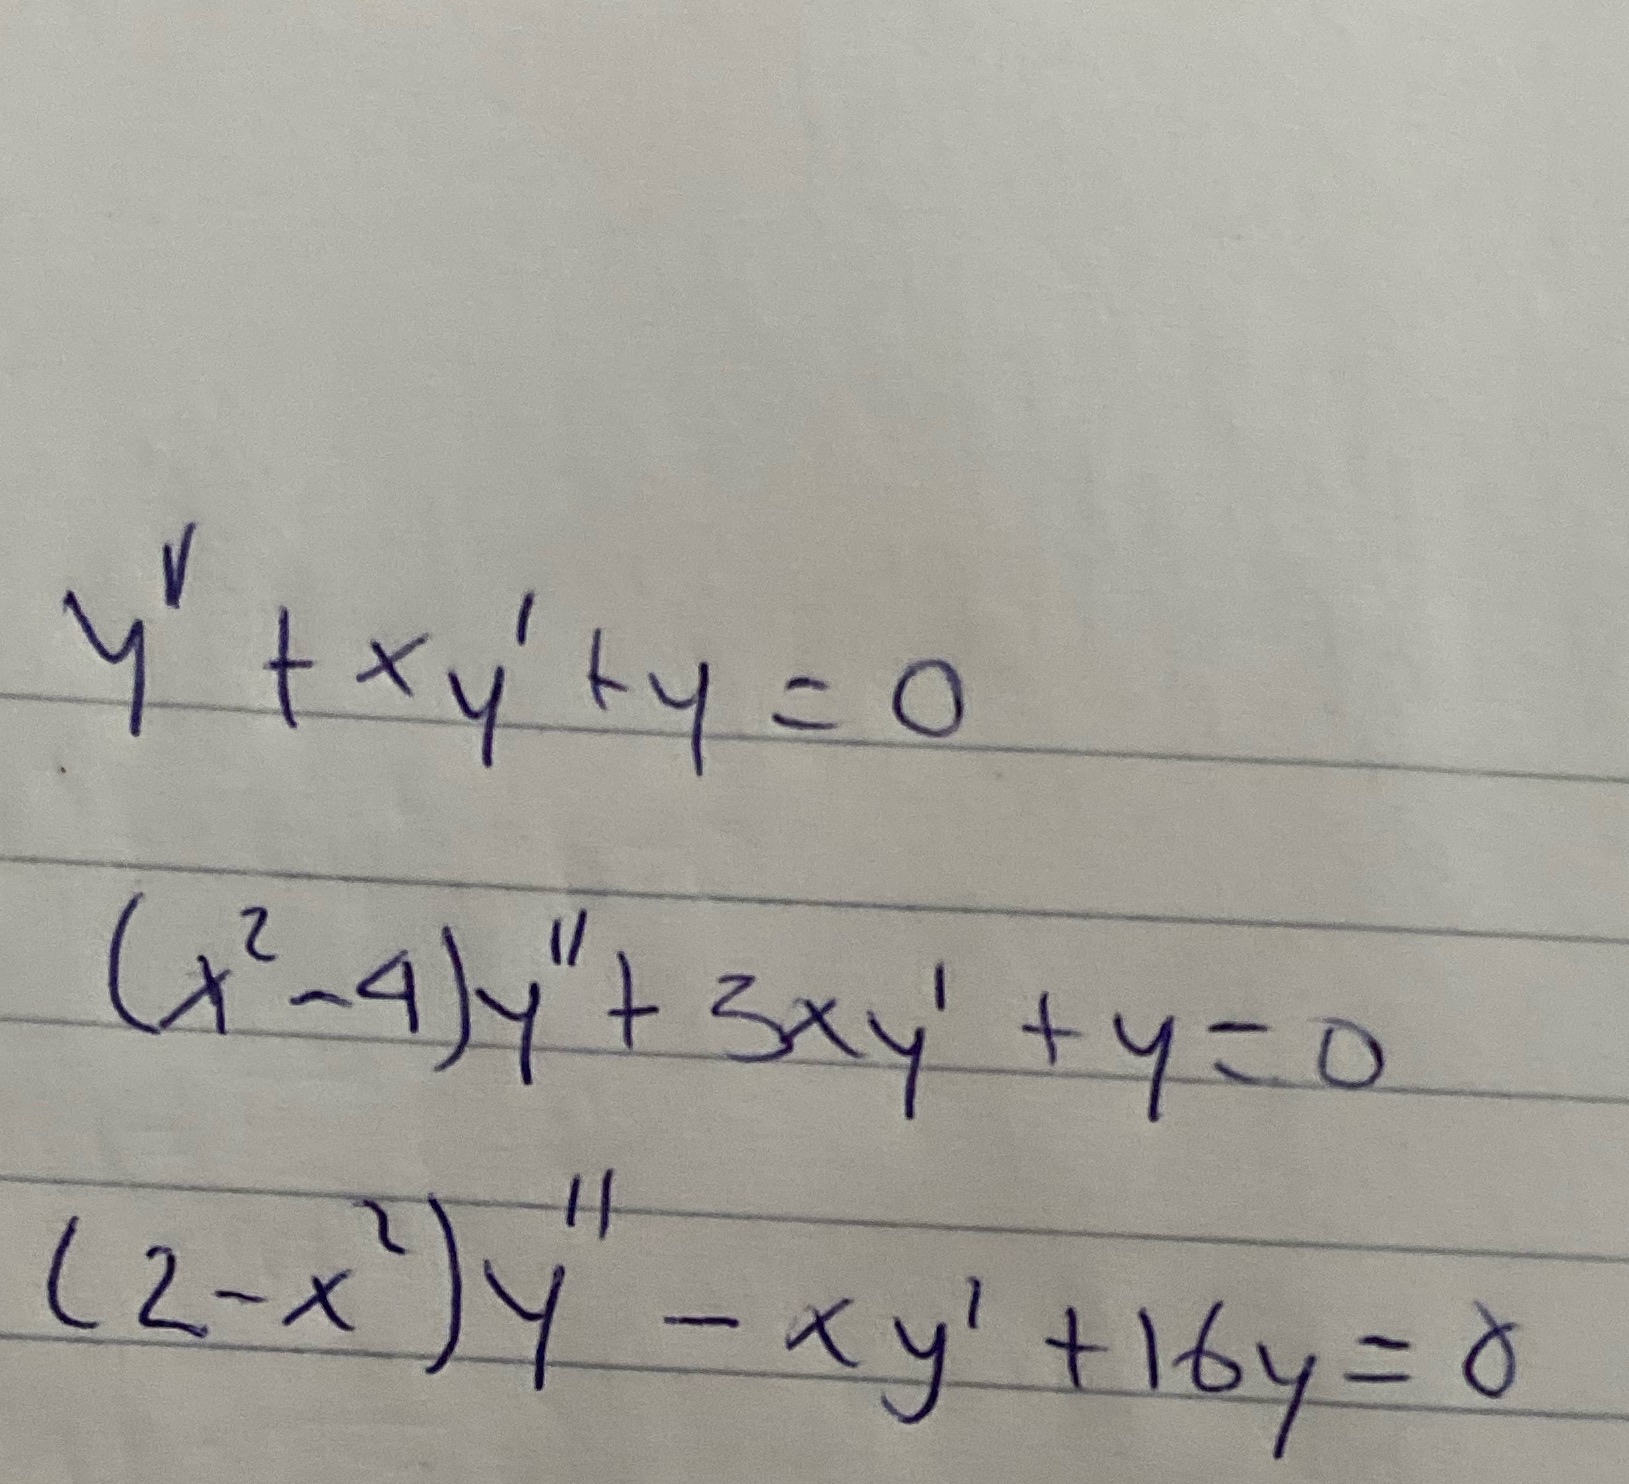 y'' + xy' + y = 0
(x² - 4)y'' + 3xy' + y = 0
(2 - x²)y'' - xy' + 16y = 0